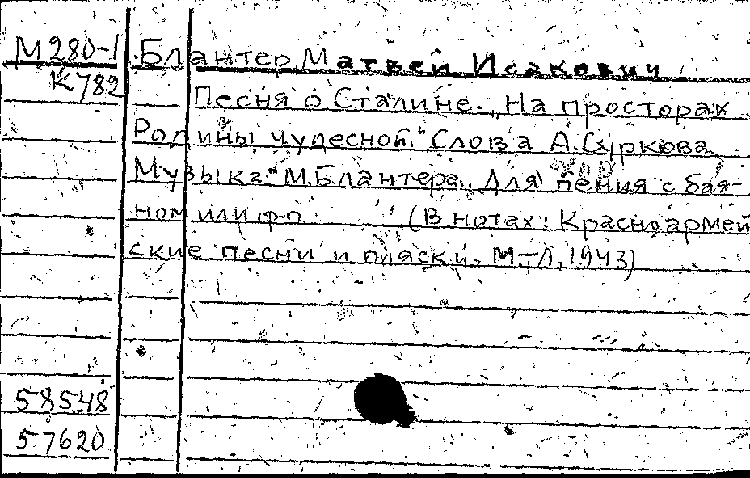 М280-1 Блантер Матвей Исакович
К782
Песня о Сталине. „На просторах
Родины чудесной." Слова А. Суркова
Музыка М. Блантера. Для пения с бая-
ном или фп (В нотах: Красноармей
ские песни и пляски. М.-Л, 1943)
58548
57620